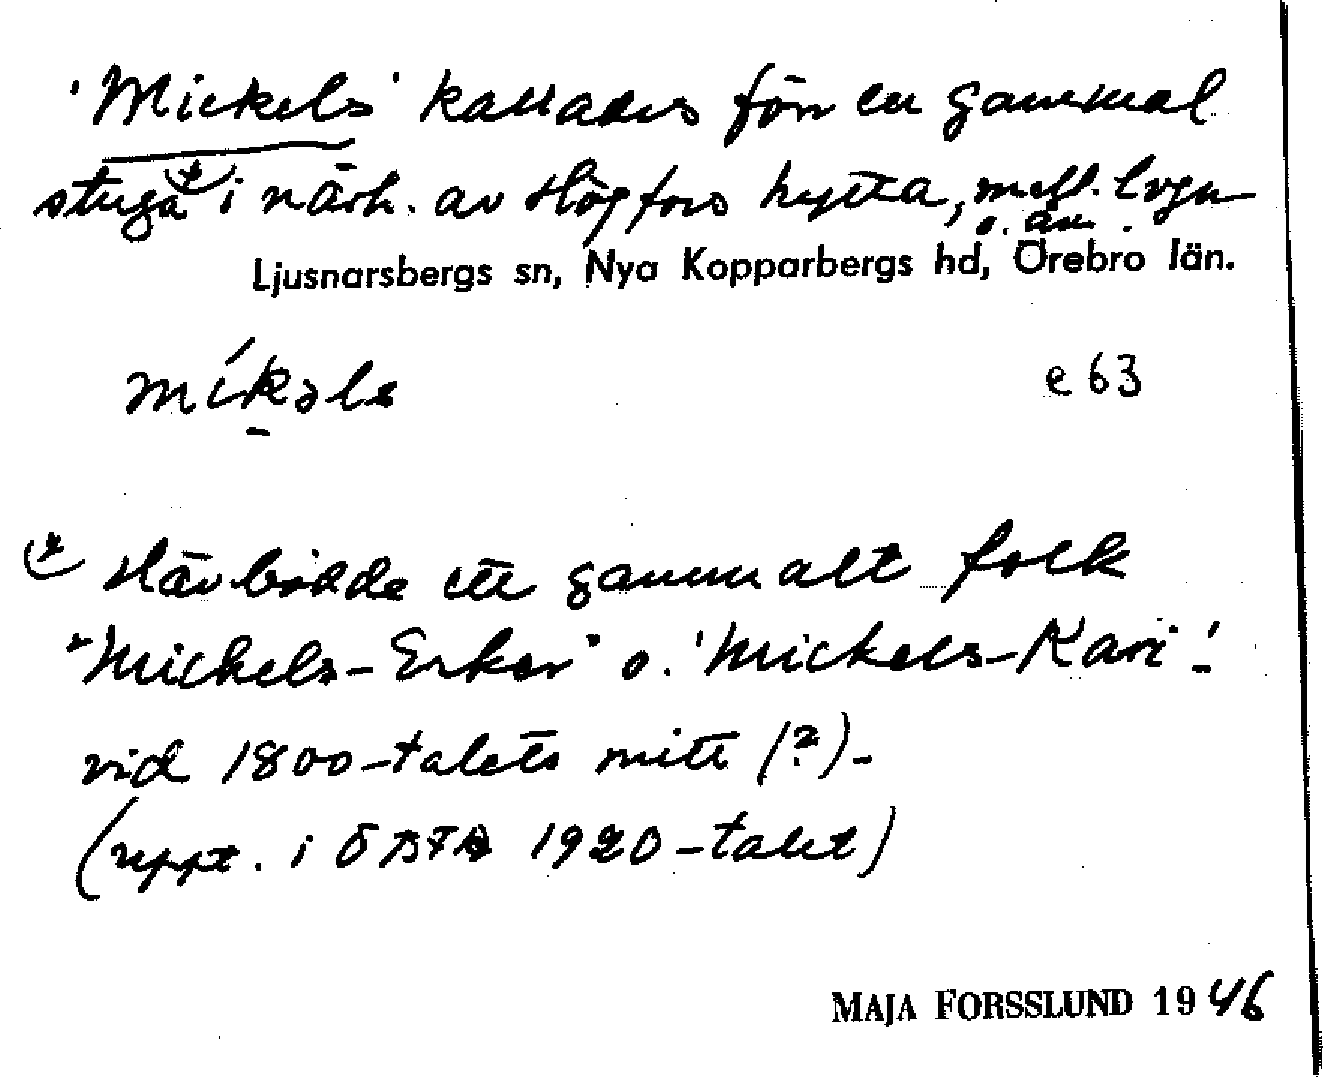 'Mickels' kallades förr en gammal
stuga *) i närh. av Högfors hytta, mell. logn
o. ån.
Ljusnarsbergs sn, Nya Kopparbergs hd, Örebro län.
míkəls e 63
*) Här bodde ett gammalt folk
"Mickels-Erker" o. 'Mickels-Kari'!
vid 1800-talets mitt (?)-
(uppt. i ÖBTA 1920-talet)
MAJA FORSSLUND 1946